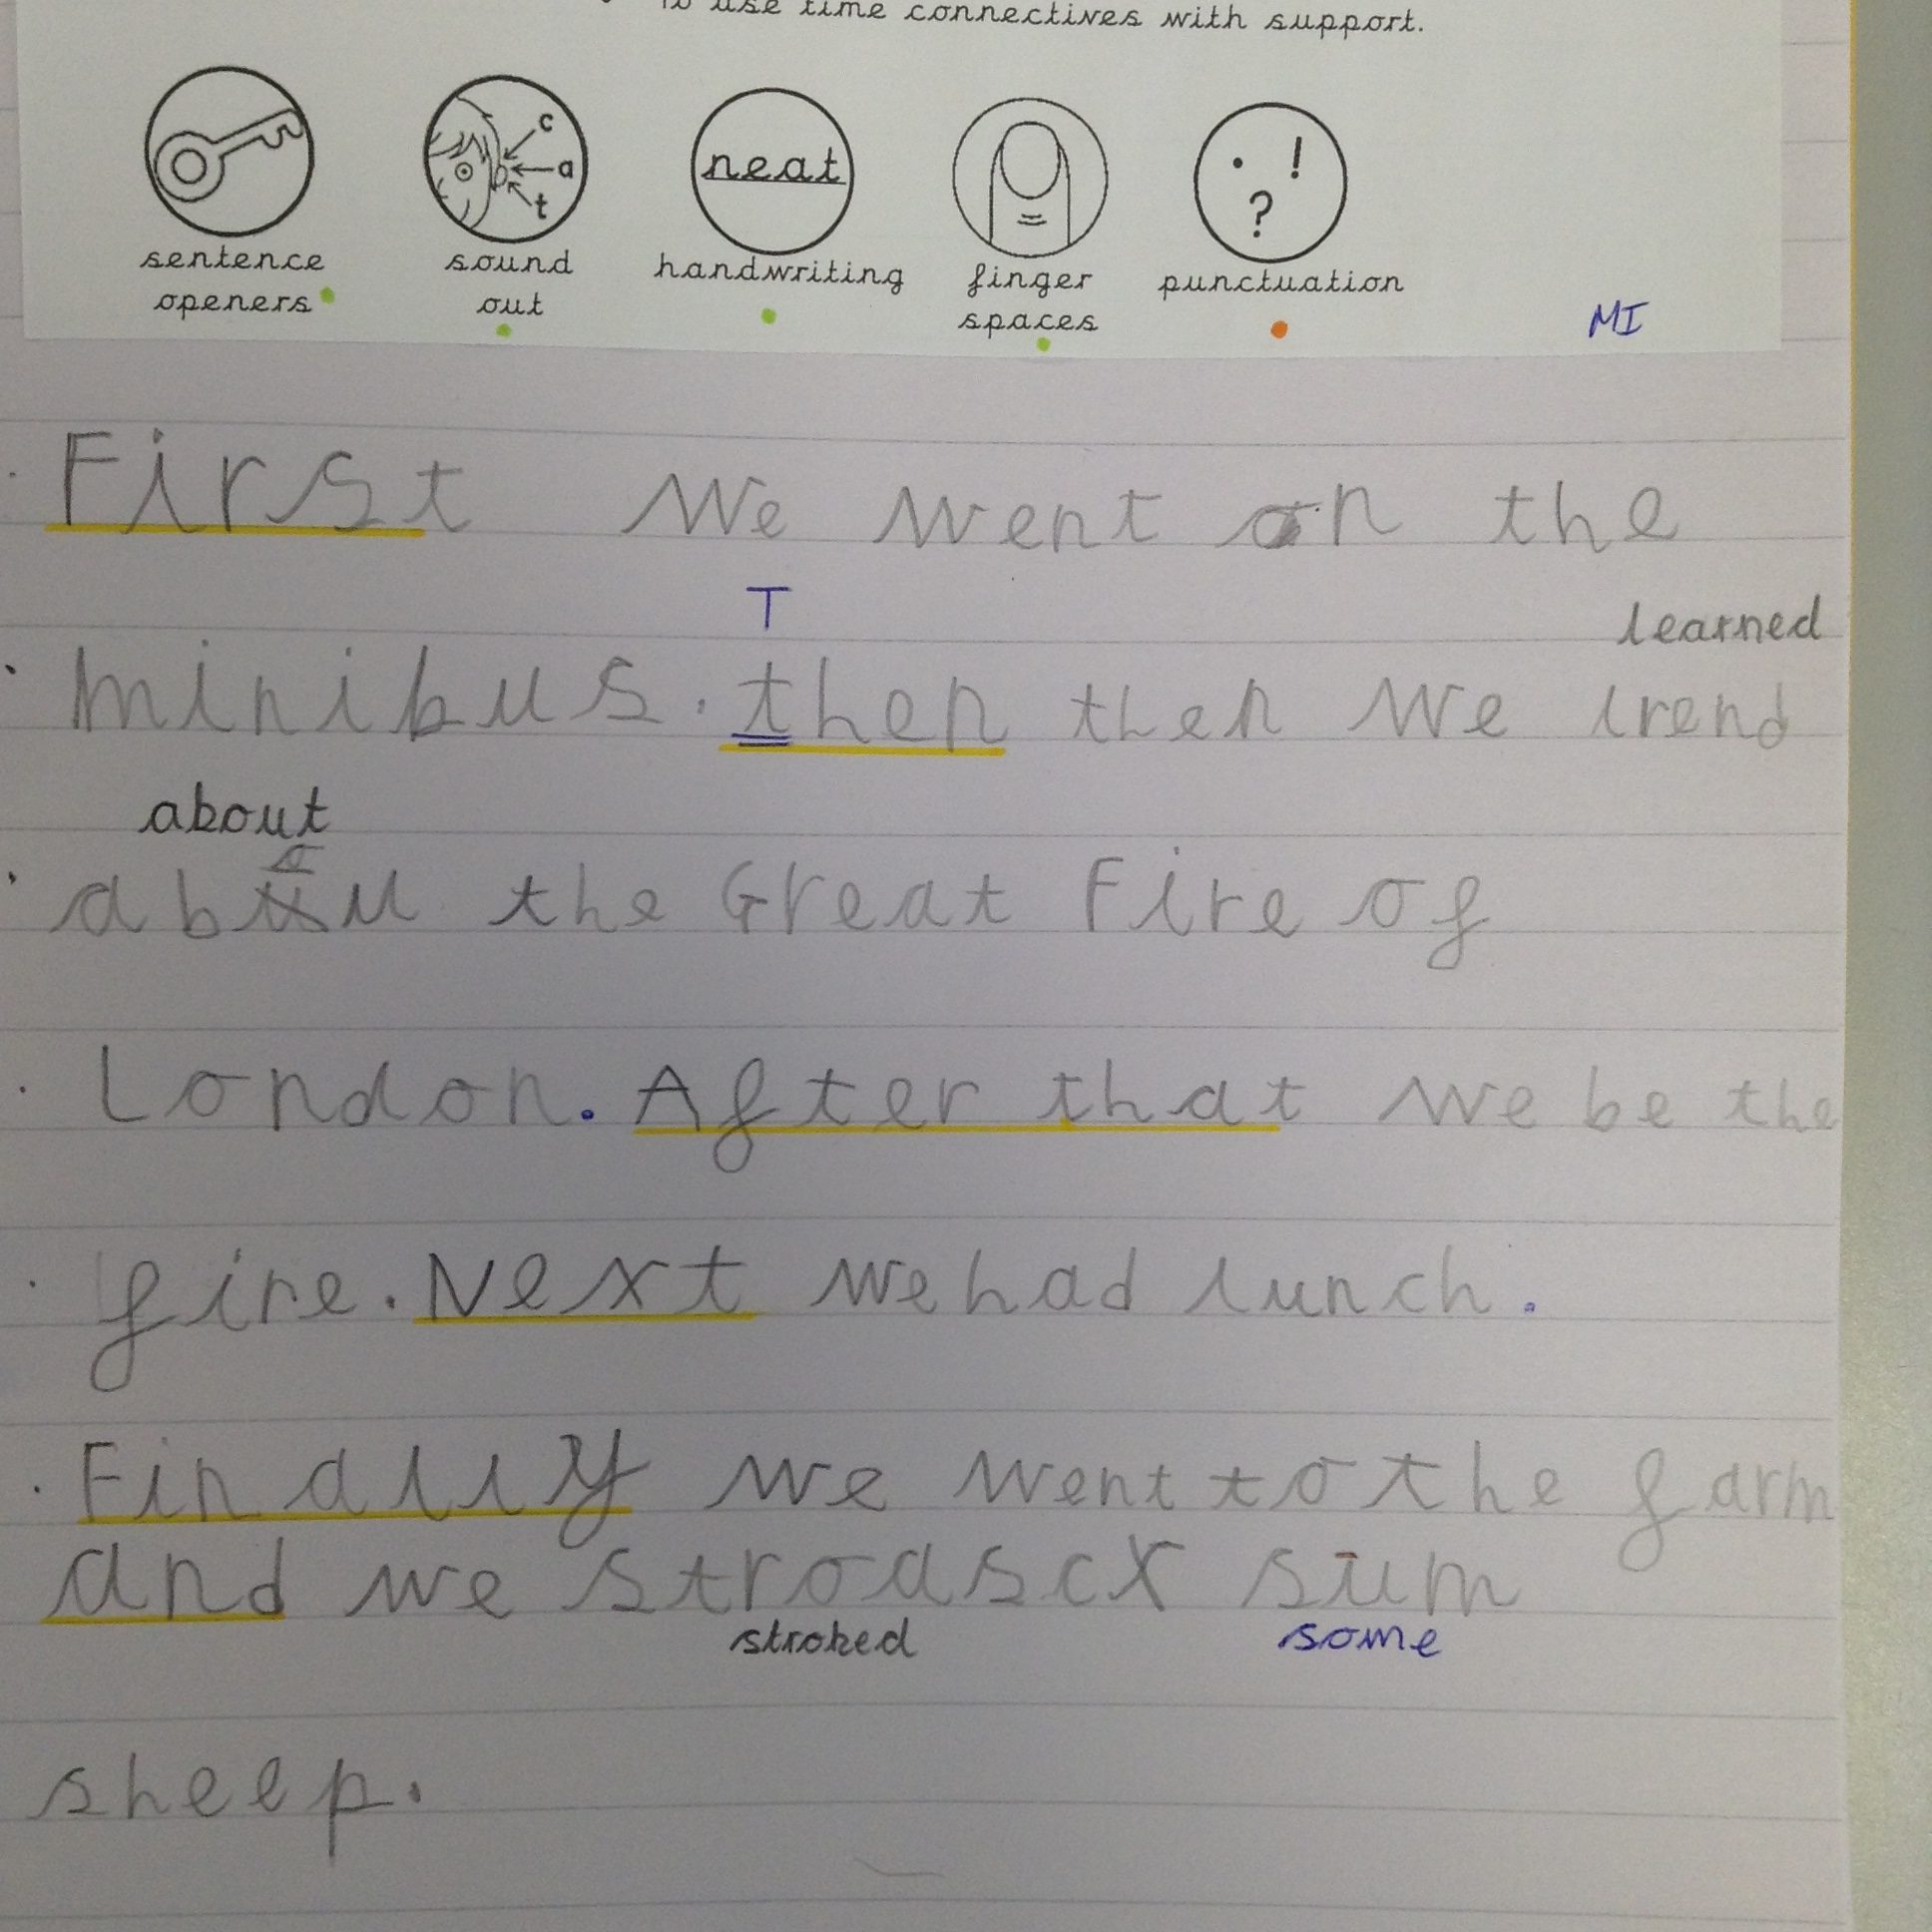 To use time connectives with support.
c
a
t
neat
. ! ?
sentence openers
sound out
handwriting
finger spaces
punctuation
MI
First we went on the
T
learned
minibus. then then we lrend
about
abou the Great Fire of
London. After that we be the
fire. Next we had lunch.
Finally we went to the farm
and we stroascx sum
stroked some
sheep.